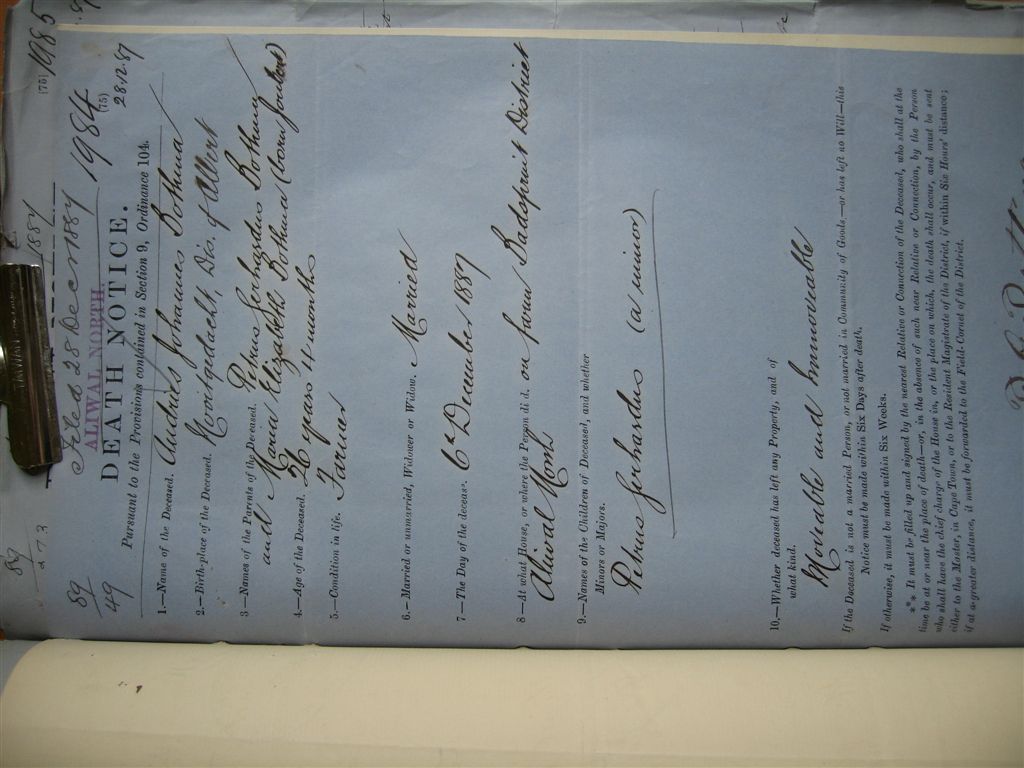 (75) 1985
1887
Filed 28 Dec 1887
ALIWAL NORTH.
(75) 1984
DEATH NOTICE.
28.12.87
Pursuant to the Provisions contained in Section 9, Ordinance 104.
1.—Name of the Deceased. Andries Johannes Bothma
2.—Birth-place of the Deceased. Nooitgedacht, Dis. of Albert
3.—Names of the Parents of the Deceased. Petrus Gerhardus Bothma
and Maria Elizabeth Bothma (born Joubert)
4.—Age of the Deceased. 26 years 11 months
5.—Condition in life. Farmer
6.—Married or unmarried, Widower or Widow. Married
7.—The Day of the decease. 6th December 1887
8.—At what House, or where the Person died. on farm Badspruit District
Aliwal North
9.—Names of the Children of Deceased, and whether
Minors or Majors.
Petrus Gerhardus (a minor)
10.—Whether deceased has left any Property, and of
what kind.
Moveable and Immoveable
If the Deceased is not a married Person, or not married in Community of Goods,—or has left no Will—this
Notice must be made within Six Days after death.
If otherwise, it must be made within Six Weeks.
*** It must be filled up and signed by the nearest Relative or Connection of the Deceased, who shall at the
time be at or near the place of death—or, in the absence of such near Relative or Connection, by the Person
who shall have the chief charge of the House in, or the place on which, the death shall occur, and must be sent
either to the Master, in Cape Town, or to the Resident Magistrate of the District, if within Six Hours' distance;
if at a greater distance, it must be forwarded to the Field-Cornet of the District.
TAIWAN